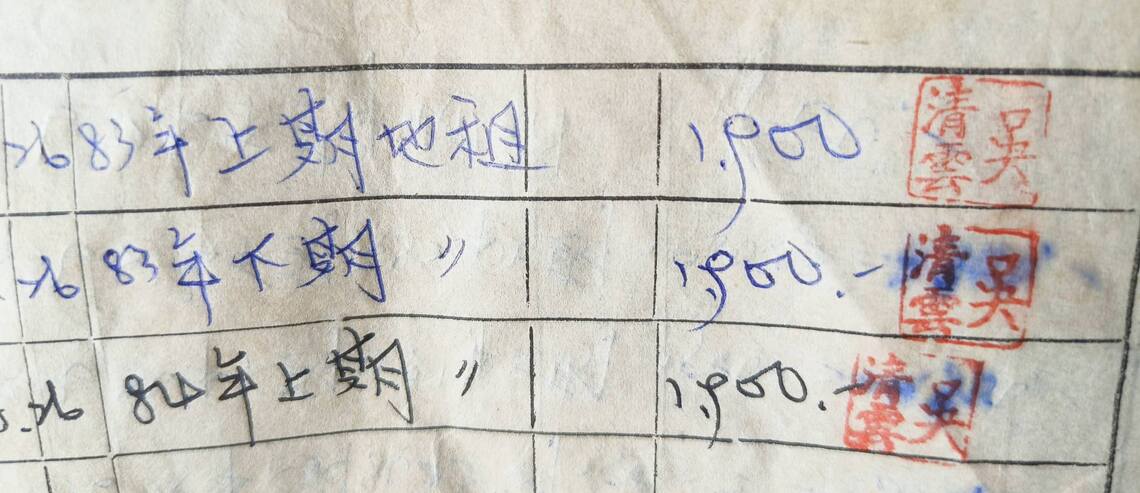 26 83年上期地租 1,900 吳清雲
26 83年下期 〃 1,900.- 吳清雲
26 84年上期 〃 1,900.- 吳清雲